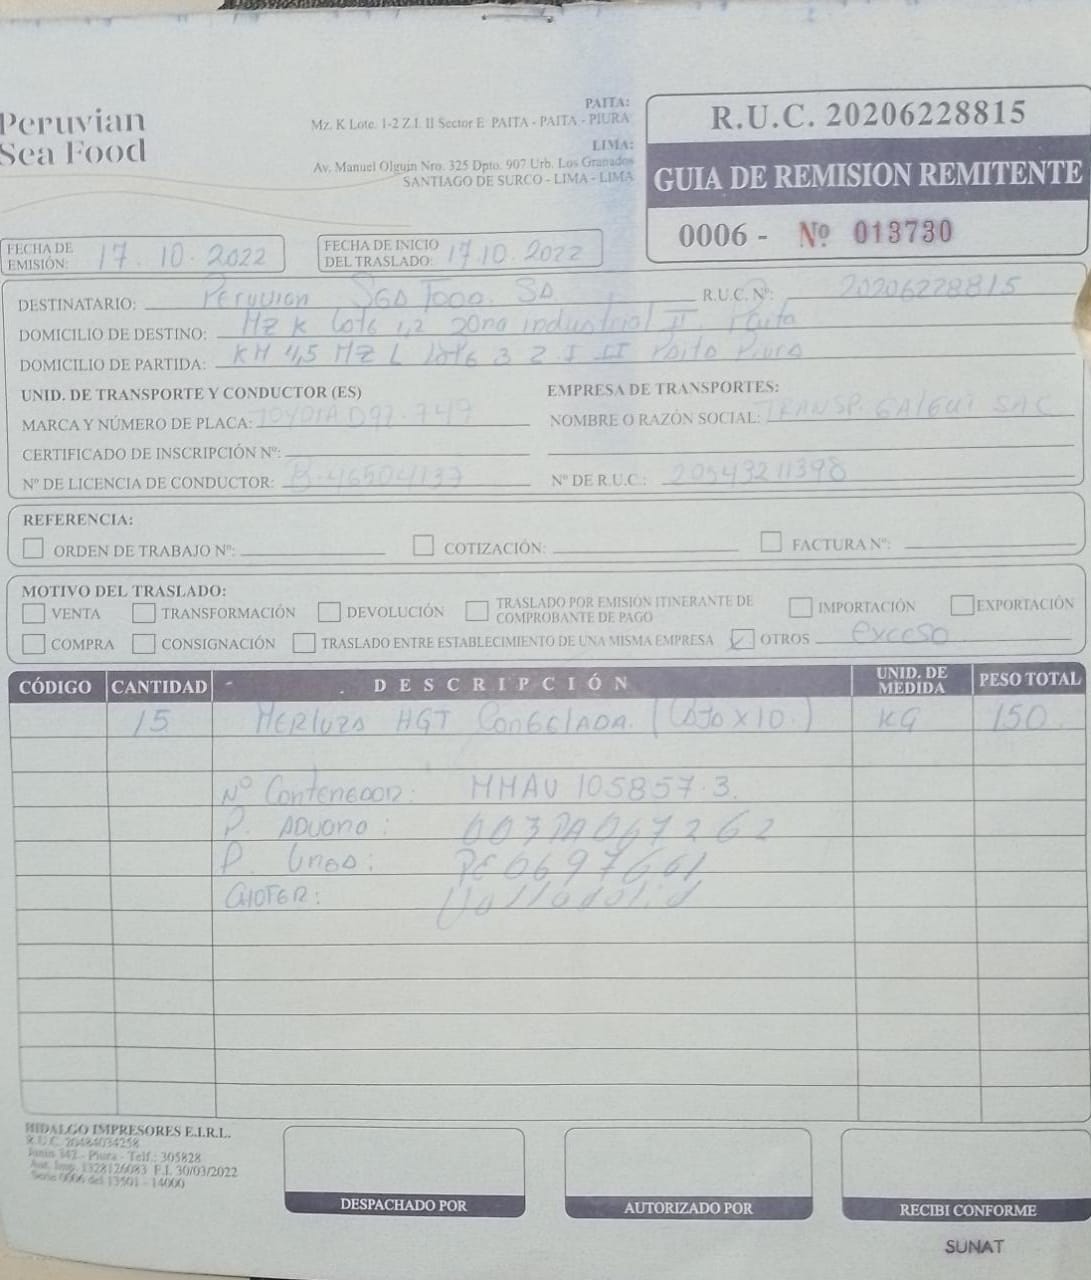 Peruvian
Sea Food
PAITA:
Mz. K Lote. 1-2 Z.I. II Sector E PAITA - PAITA - PIURA
LIMA:
Av. Manuel Olguin Nro. 325 Dpto. 907 Urb. Los Granados
SANTIAGO DE SURCO - LIMA - LIMA
R.U.C. 20206228815
GUIA DE REMISION REMITENTE
0006 - Nº 013730
FECHA DE EMISIÓN: 17.10.2022
FECHA DE INICIO DEL TRASLADO: 17.10.2022
DESTINATARIO: Peruvian Sea Food. SA R.U.C. Nº: 20206228815
DOMICILIO DE DESTINO: Mz K Lote 1,2 Zona industrial II. Paita
DOMICILIO DE PARTIDA: KM 4,5 MZ L Lote 3 Z I II Paita Piura
UNID. DE TRANSPORTE Y CONDUCTOR (ES)
EMPRESA DE TRANSPORTES:
MARCA Y NÚMERO DE PLACA: TOYOTA D97-749
NOMBRE O RAZÓN SOCIAL: TRANSP. GALGUI SAC
CERTIFICADO DE INSCRIPCIÓN Nº:
Nº DE LICENCIA DE CONDUCTOR: B-46504137
Nº DE R.U.C.: 20543211398
REFERENCIA:
ORDEN DE TRABAJO Nº: COTIZACIÓN: FACTURA Nº:
MOTIVO DEL TRASLADO:
VENTA TRANSFORMACIÓN DEVOLUCIÓN TRASLADO POR EMISIÓN ITINERANTE DE COMPROBANTE DE PAGO IMPORTACIÓN EXPORTACIÓN
COMPRA CONSIGNACIÓN TRASLADO ENTRE ESTABLECIMIENTO DE UNA MISMA EMPRESA OTROS exceso
CÓDIGO CANTIDAD DESCRIPCIÓN UNID. DE MEDIDA PESO TOTAL
15 Merluza HGT Congelada. (Caja x 10.) KG 150
Nº Contenedor: MMAU 105857.3.
P. ADUANA: 003PA067262
P. Linea: PE0697661
CHOFER: Valladolid
HIDALGO IMPRESORES E.I.R.L.
R.U.C. 20484034258
Junín 342 - Piura - Telf.: 305828
Aut. Imp. 1328126083 F.I. 30/03/2022
Serie 0006 del 13501 - 14000
DESPACHADO POR
AUTORIZADO POR
RECIBI CONFORME
SUNAT